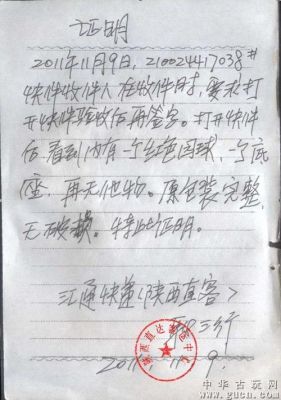 证明
2011年11月9日，210024417038#
快件收件人在收件时，要求打
开快件验收后再签字。打开快件
后，看到内有一个红色园球，一个底
座，再无他物。原包装完整，
无破损。特此证明。
汇通快递〈陕西直客〉
2011. 11. 9.
中华古玩网
www.gucn.com